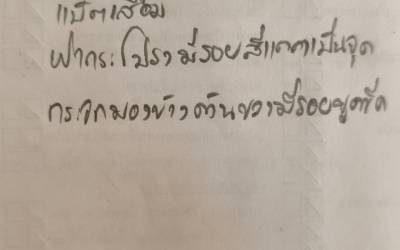 แบ็ตเสื่อม
ฝากระโปรงมีรอยสีแตกเป็นจุด
กระจกมองข้างด้านขวามีรอยขูดขีด